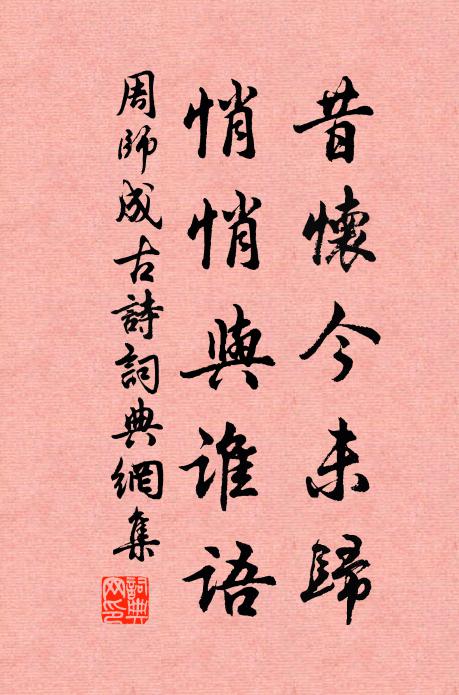 昔懷今未歸
悄悄與誰語
周師成古詩詞典網集
詞典網印